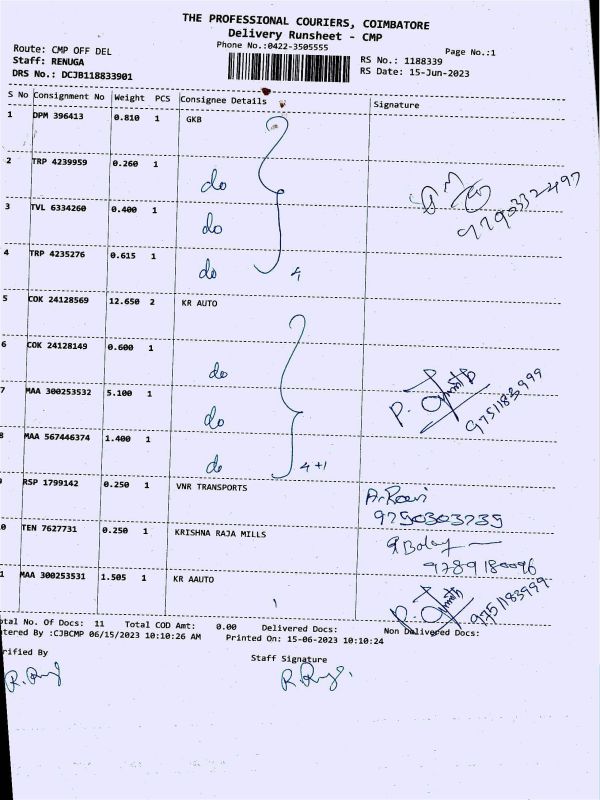 THE PROFESSIONAL COURIERS, COIMBATORE
Delivery Runsheet - CMP
Phone No.:0422-3505555
Page No.:1
Route: CMP OFF DEL
Staff: RENUGA
DRS No.: DCJB118833901
RS No.: 1188339
RS Date: 15-Jun-2023
S No Consignment No Weight PCS Consignee Details Signature
1 DPM 396413 0.810 1 GKB
2 TRP 4239959 0.260 1 do
3 TVL 6334260 0.400 1 do
9790332497
4 TRP 4235276 0.615 1 do 4
5 COK 24128569 12.650 2 KR AUTO
6 COK 24128149 0.600 1 do
7 MAA 300253532 5.100 1 do
P. 9751183999
8 MAA 567446374 1.400 1 do 4+1
RSP 1799142 0.250 1 VNR TRANSPORTS A. Ravi
9750303735
0 TEN 7627731 0.250 1 KRISHNA RAJA MILLS
9789180096
1 MAA 300253531 1.505 1 KR AAUTO 1 P. 9751183999
otal No. Of Docs: 11 Total COD Amt: 0.00 Delivered Docs: Non Delivered Docs:
tered By :CJBCMP 06/15/2023 10:10:26 AM Printed On: 15-06-2023 10:10:24
rified By Staff Signature